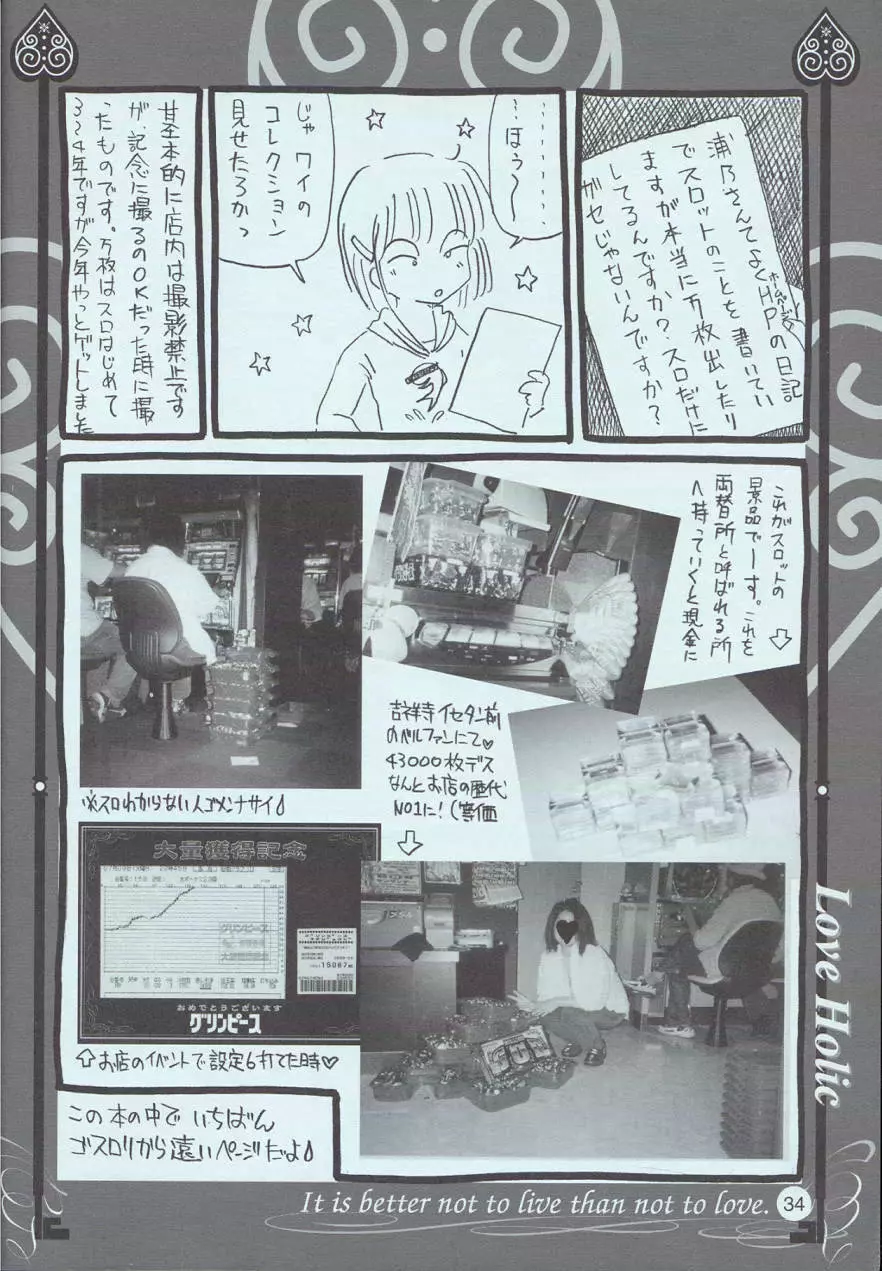 浦乃さんてよくHPの日記
ホームページ
でスロットのことを書いてい
ますが本当に万枚出したり
してるんですか？スロだけに
ガセじゃないんですか？
………
…ほぅ〜
じゃワイの
コレクション
見せたろかっ
基本的に店内は撮影禁止です
が、記念に撮るのOKだった時に撮
ったものです。万枚はスロはじめて
3〜4年ですが今年やっとゲットしました
これがスロットの
景品でーす。これを
両替所と呼ばれる所
へ持っていくと現金に
⇩
吉祥寺イセタン前
のベルファンにて♡
43000枚デス
なんとお店の歴代
NO1に！（等価
⇩
※スロわからない人ゴメンナサイ
大量獲得記念
グリンピース
15067
おめでとうございます
グリンピース
⇧お店のイベントで設定6打てた時♡
この本の中でいちばん
ゴスロリから遠いページだよ
Love Holic
It is better not to live than not to love.
34